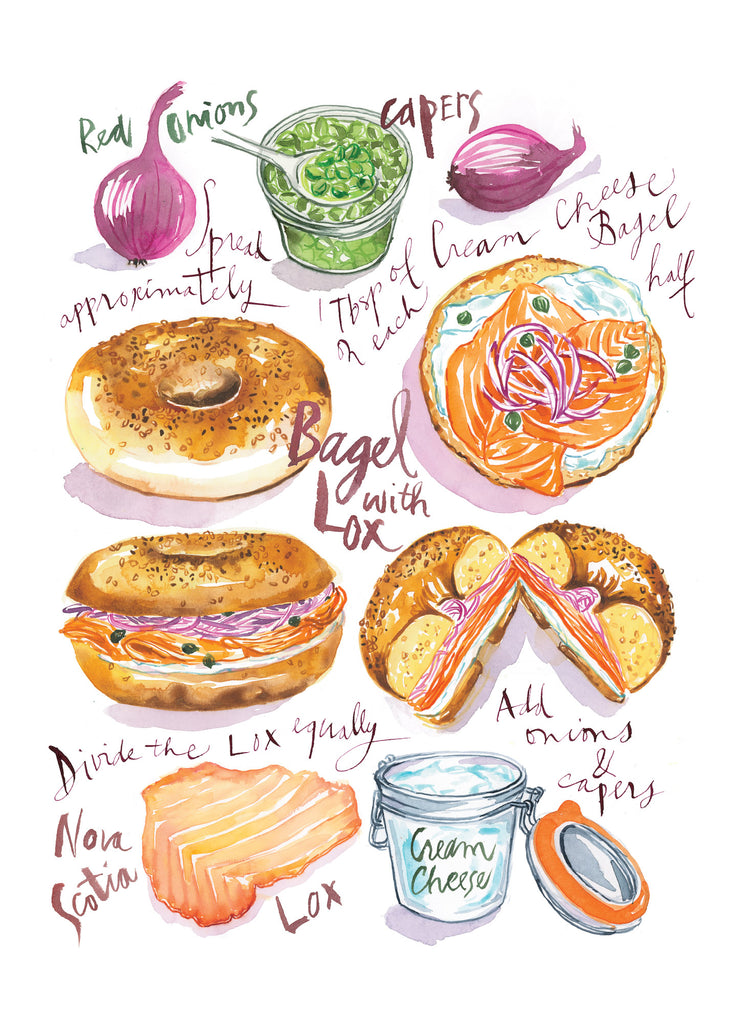 Red Onions
Capers
Spread
approximately
1 Tbsp of Cream Cheese
on each Bagel
half
Bagel
with
Lox
Divide the Lox equally
Add
onions
&
capers
Nova
Scotia
Lox
Cream
Cheese